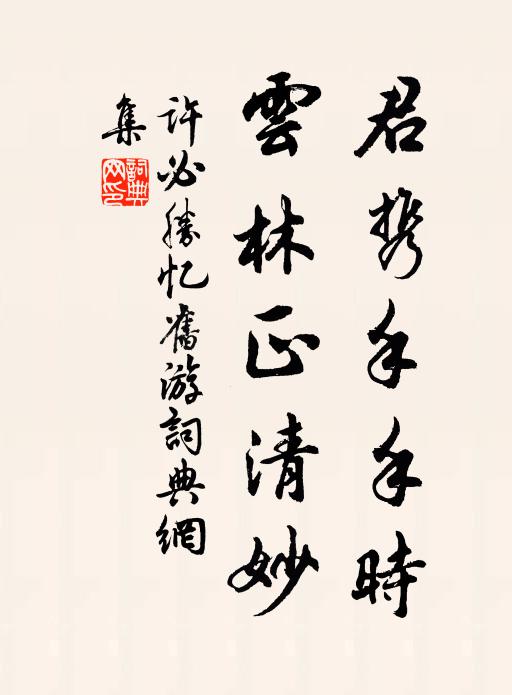 君携手手時
雲林正清妙
許必勝忆舊游詞典網
集
詞典網印